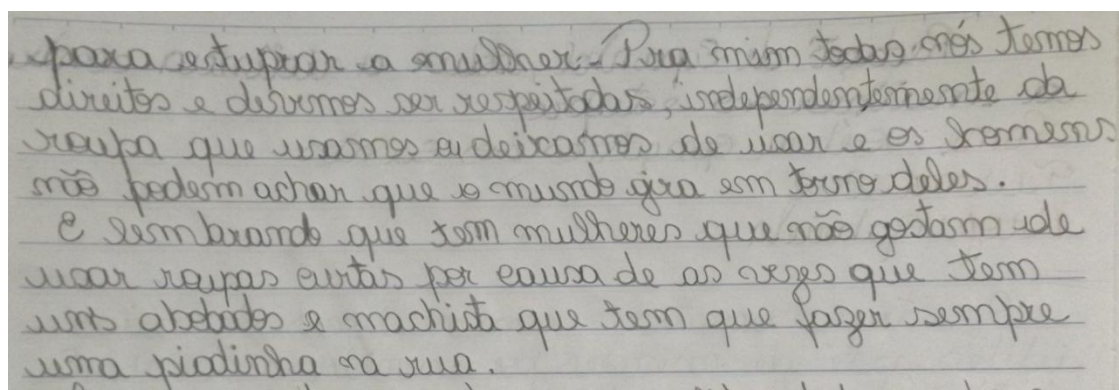 para estuprar a mulher. Pra mim todas nós temos
direitos e devemos ser respeitadas, independentemente da
roupa que usamos ou deixamos de usar e os homens
não podem achar que o mundo gira em torno deles.
E lembrando que tem mulheres que não gostam de
usar roupas curtas por causa de as vezes que tem
uns abobados e machista que tem que fazer sempre
uma piadinha na rua.